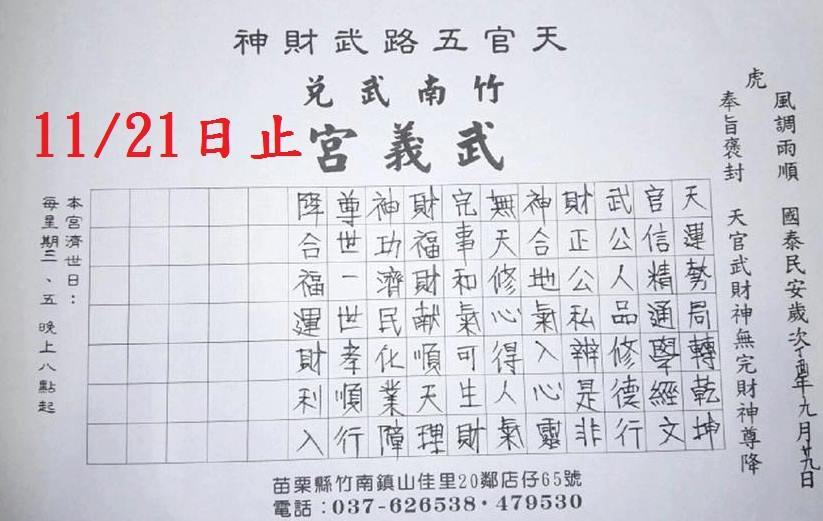 天官五路武財神
竹南武兌
武義宮
11/21日止
風調雨順 國泰民安歲次丁酉年九月廿九日
虎
奉旨褒封 天官武財神無完財神尊降
天運勢局轉乾坤
官信精通學經文
武公人品修德行
財正公私辨是非
神合地氣入心靈
無天修心得人氣
完事和氣可生財
財福財獻順天理
神功濟民化業障
尊世一世孝順行
降合福運財利入
本宮濟世日：
每星期三、五 晚上八點起
苗栗縣竹南鎮山佳里20鄰店仔65號
電話：037-626538·479530